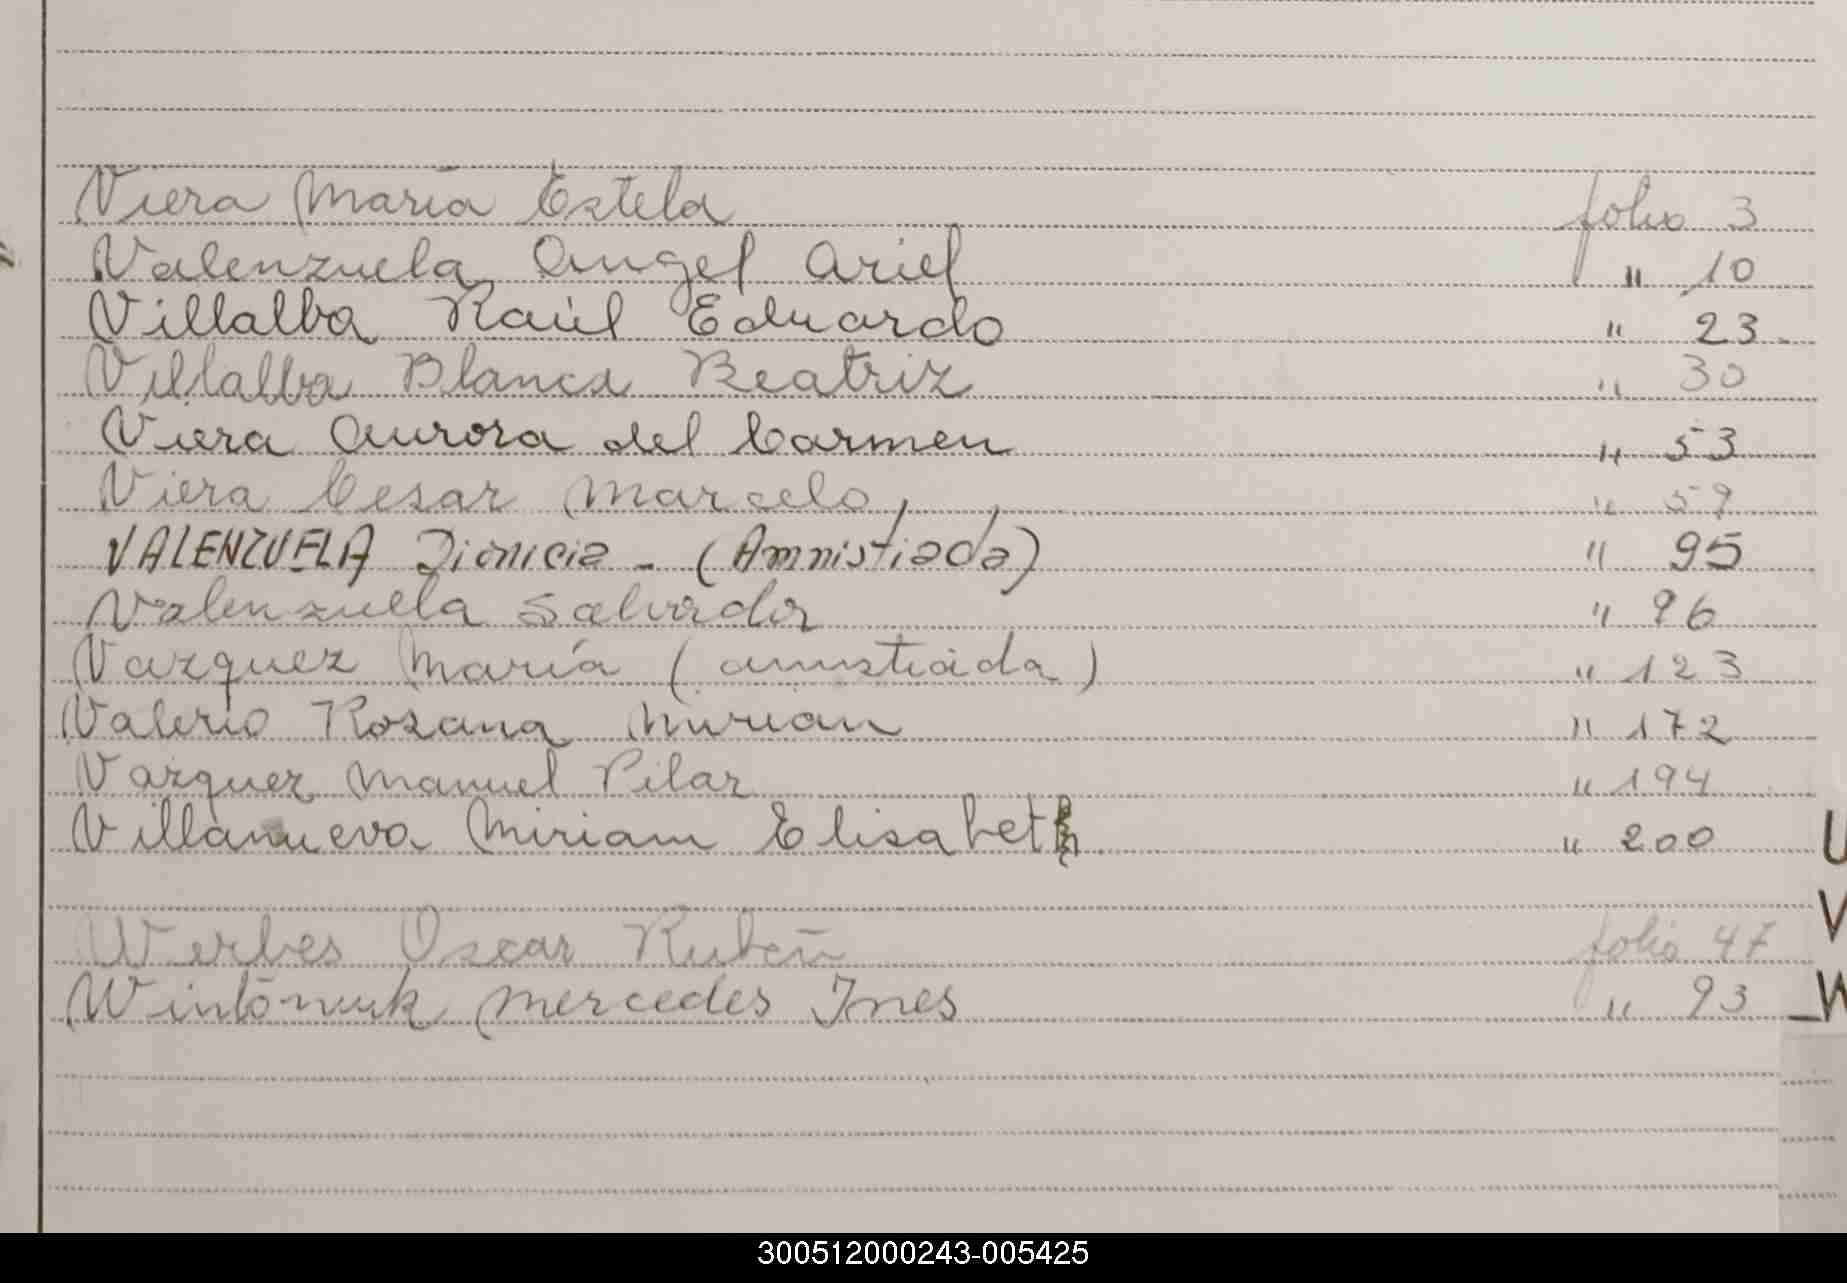 Viera María Estela folio 3
Valenzuela Angel Ariel " 10
Villalba Raúl Eduardo " 23.
Villalba Blanca Beatriz " 30
Viera Aurora del Carmen " 53
Viera Cesar Marcelo " 59
VALENZUELA Dionicia - (Amnistiada) " 95
Valenzuela Salvador " 96
Vazquez María (amistiada) " 123
Valerio Rosana Mirian " 172
Vazquez Manuel Pilar " 194
Villanueva Miriam Elisabeth. " 200
U
V
Werbes Oscar Rubén folio 47
Mercedes Ines " 93
W
300512000243-005425